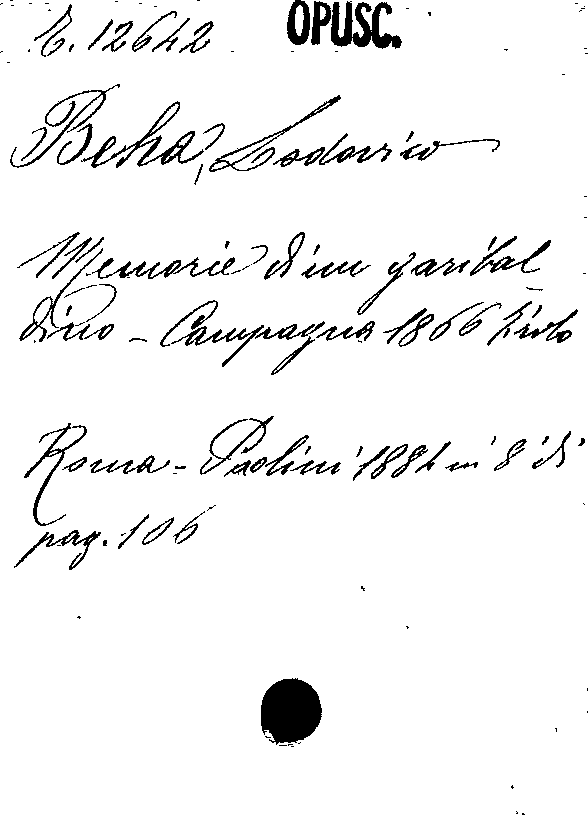 E. 12642 OPUSC.
Beha, Lodovico
Memorie di un garibal_
dino - Campagna 1866 Tirolo
Roma - Paolini 1884 in 8° di
pag. 106